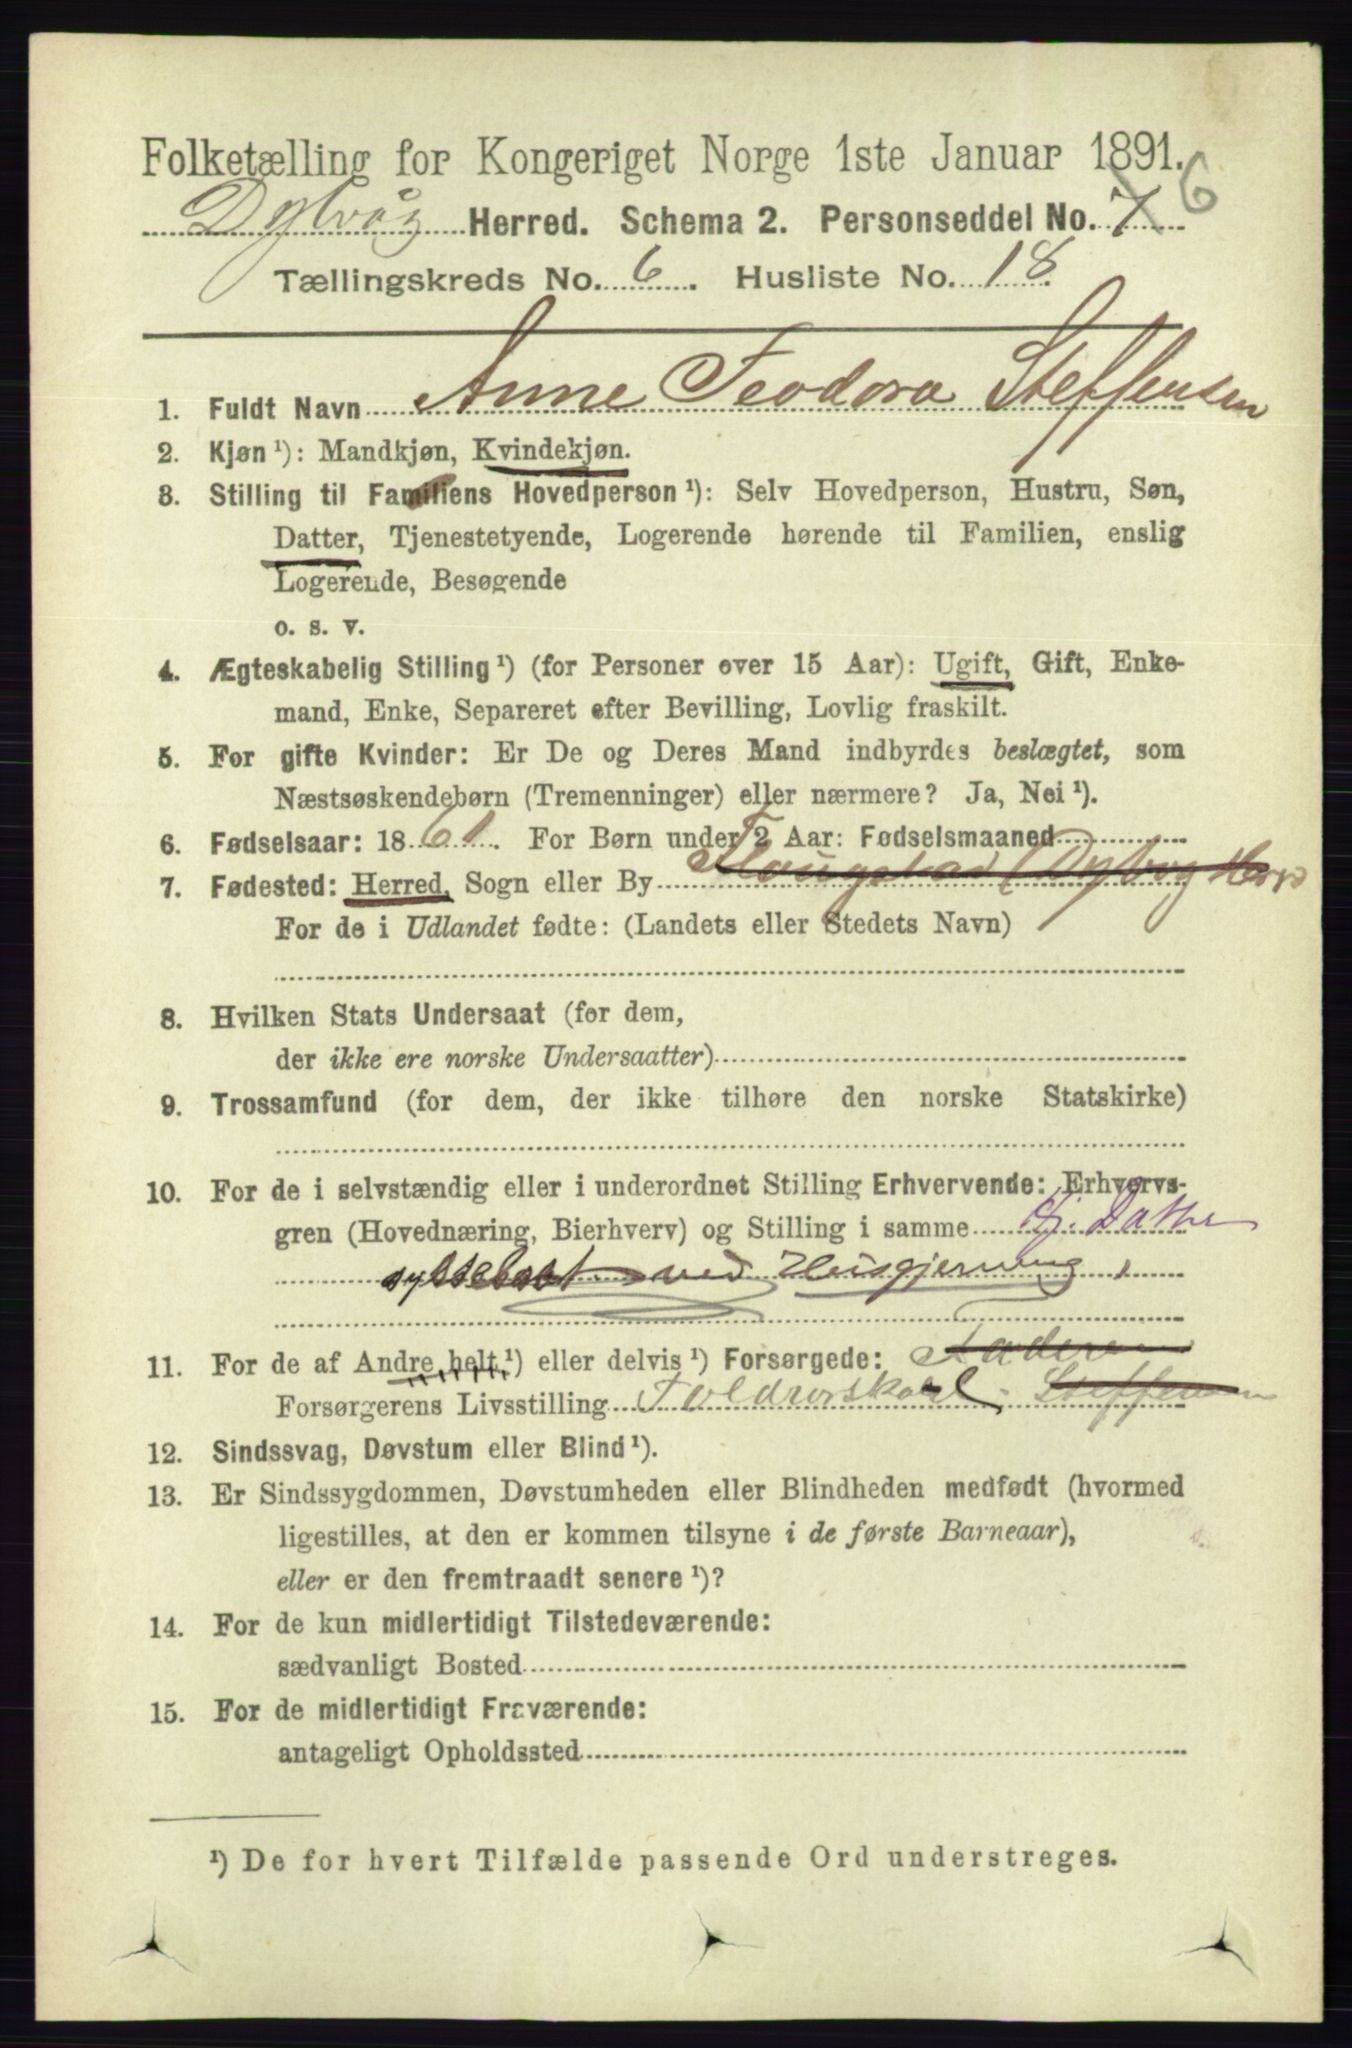 Folketælling for Kongeriget Norge 1ste Januar 1891.
Dybvåg Herred. Schema 2. Personseddel No. 7 6
Tællingskreds No. 6. Husliste No. 18.
1. Fuldt Navn Anne Feodora Steffensen
2. Kjøn ¹): Mandkjøn, Kvindekjøn.
3. Stilling til Familiens Hovedperson ¹): Selv Hovedperson, Hustru, Søn,
Datter, Tjenestetyende, Logerende hørende til Familien, enslig
Logerende, Besøgende
o. s. v.
4. Ægteskabelig Stilling ¹) (for Personer over 15 Aar): Ugift, Gift, Enke-
mand, Enke, Separeret efter Bevilling, Lovlig fraskilt.
5. For gifte Kvinder: Er De og Deres Mand indbyrdes beslægtet, som
Næstsøskendebørn (Tremenninger) eller nærmere? Ja, Nei ¹).
6. Fødselsaar: 1861. For Børn under 2 Aar: Fødselsmaaned
7. Fødested: Herred, Sogn eller By (Dybvog Herred
For de i Udlandet fødte: (Landets eller Stedets Navn)
8. Hvilken Stats Undersaat (for dem,
der ikke ere norske Undersaatter)
9. Trossamfund (for dem, der ikke tilhøre den norske Statskirke)
10. For de i selvstændig eller i underordnet Stilling Erhvervende: Erhvervs-
gren (Hovednæring, Bierhverv) og Stilling i samme Hj. Datter
sysselsat ved Husgjerning,
11. For de af Andre helt ¹) eller delvis ¹) Forsørgede: Faderen
Forsørgerens Livsstilling Steffensen
12. Sindssvag, Døvstum eller Blind ¹).
13. Er Sindssygdommen, Døvstumheden eller Blindheden medfødt (hvormed
ligestilles, at den er kommen tilsyne i de første Barneaar),
eller er den fremtraadt senere ¹)?
14. For de kun midlertidigt Tilstedeværende:
sædvanligt Bosted
15. For de midlertidigt Fraværende:
antageligt Opholdssted
¹) De for hvert Tilfælde passende Ord understreges.